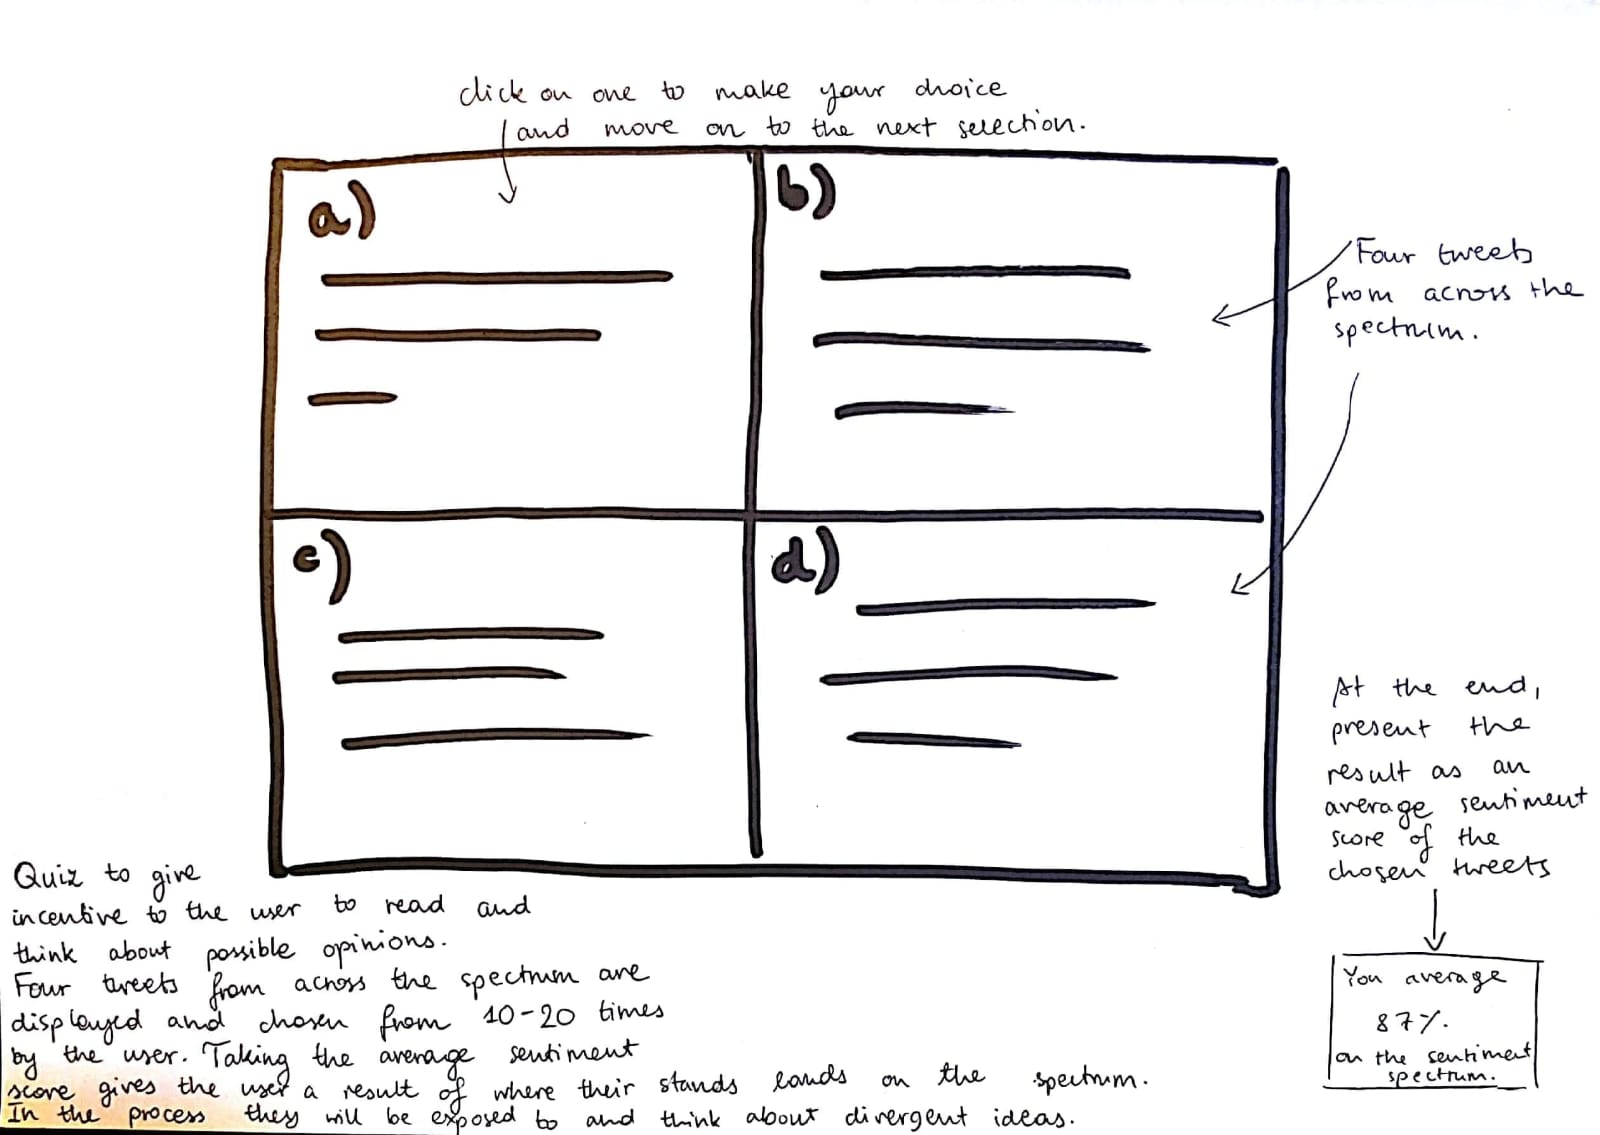 click on one to make your choice
and move on to the next selection.
a)
b)
Four tweets
from across the
spectrum.
c)
d)
At the end,
present the
result as an
average sentiment
score of the
chosen tweets
You average
87%.
on the sentiment
spectrum.
Quiz to give
incentive to the user to read and
think about possible opinions.
Four tweets from across the spectrum are
displayed and chosen from 10-20 times
by the user. Taking the average sentiment
score gives the user a result of where their stands lands on the spectrum.
In the process they will be exposed to and think about divergent ideas.